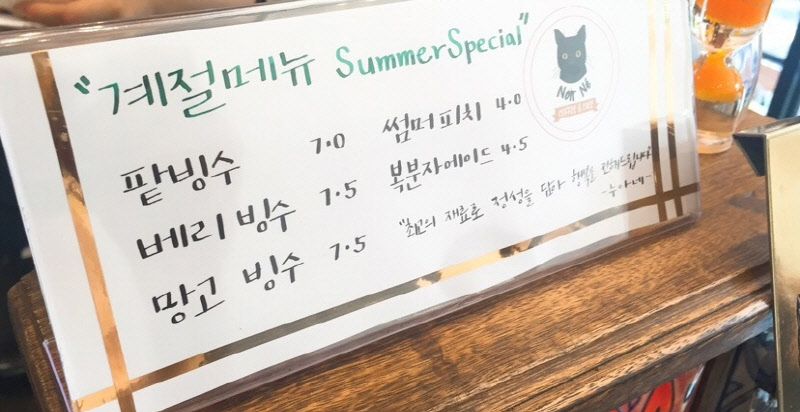 "계절메뉴 Summer Special"
팥빙수 7.0
베리 빙수 7.5
망고 빙수 7.5
썸머피치 4.0
복분자에이드 4.5
"최고의 재료로 정성을 담아 행복을 전해드립니다
-누아네-
Noir Né